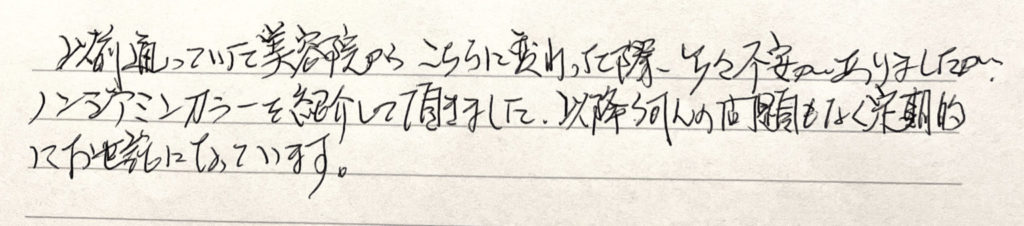 以前通っていた美容院からこちらに変わった際、少々不安がありましたが、
ノンジアミンカラーを紹介して頂きました。以降何んの問題もなく定期的
にお世話になっています。